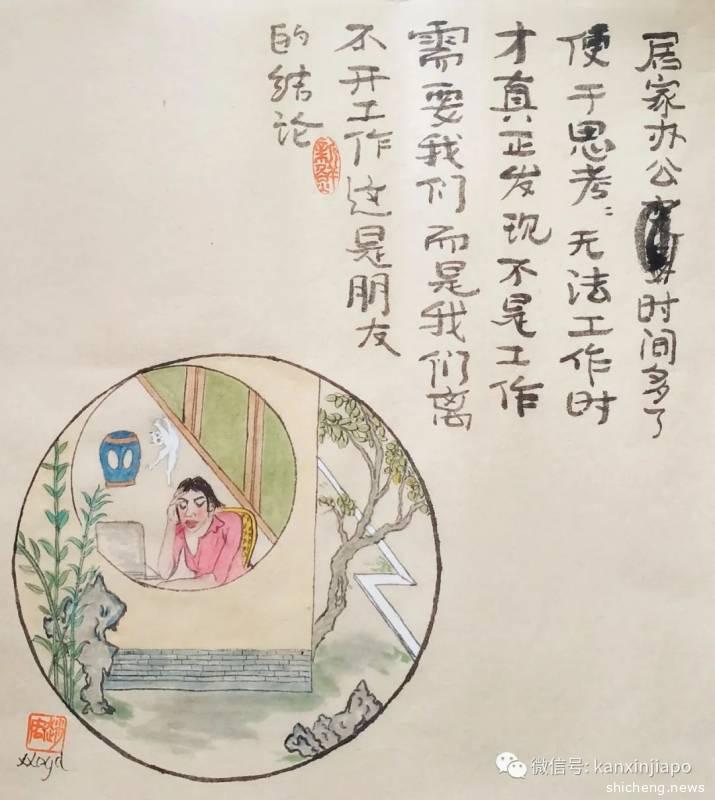 居家办公时间多了
便于思考：无法工作时
才真正发现不是工作
需要我们而是我们离
不开工作这是朋友
的结论
微信号: kanxinjiapo
shicheng.news